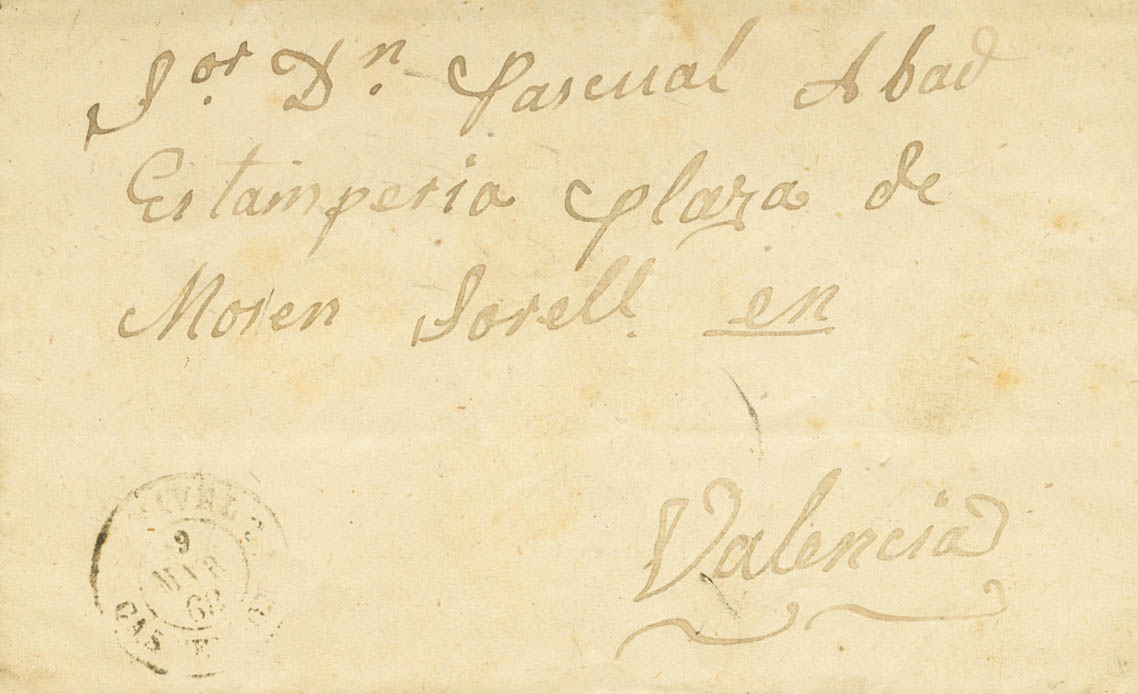 S.or D.n Pascual Abad
Estamperia Plaza de
Mosen Sorell. en
Valencia
9
MAR
68
CAS